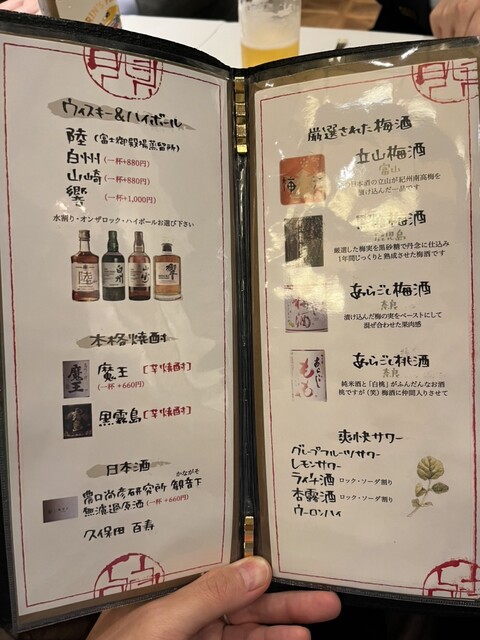 ウィスキー&ハイボール
陸 (富士御殿場蒸留所)
白州 (一杯+880円)
山崎 (一杯+880円)
響 (一杯+1,000円)
水割り・オンザロック・ハイボールお選び下さい
陸
白州
山崎
響
本格焼酎
魔王
魔王 [芋焼酎]
(一杯+660円)
黒霧島 [芋焼酎]
日本酒
かながそ
農口尚彦研究所 観音下
無濾過原酒 (一杯+660円)
久保田 百寿
厳選された梅酒
立山梅酒
富山
日本酒の立山が紀州南高梅を
漬け込んだ一品です
梅酒
鹿児島
厳選した梅実を黒砂糖で丹念に仕込み
1年間じっくりと熟成させた梅酒です
梅酒
あらごし梅酒
奈良
漬け込んだ梅の実をペーストにして
混ぜ合わせた果肉感
あらごし
もも
あらごし桃酒
奈良
純米酒と「白桃」がふんだんなお酒
桃ですが(笑)梅酒に仲間入りさせて
爽快サワー
グレープフルーツサワー
レモンサワー
ライチ酒 ロック・ソーダ割り
杏露酒 ロック・ソーダ割り
ウーロンハイ